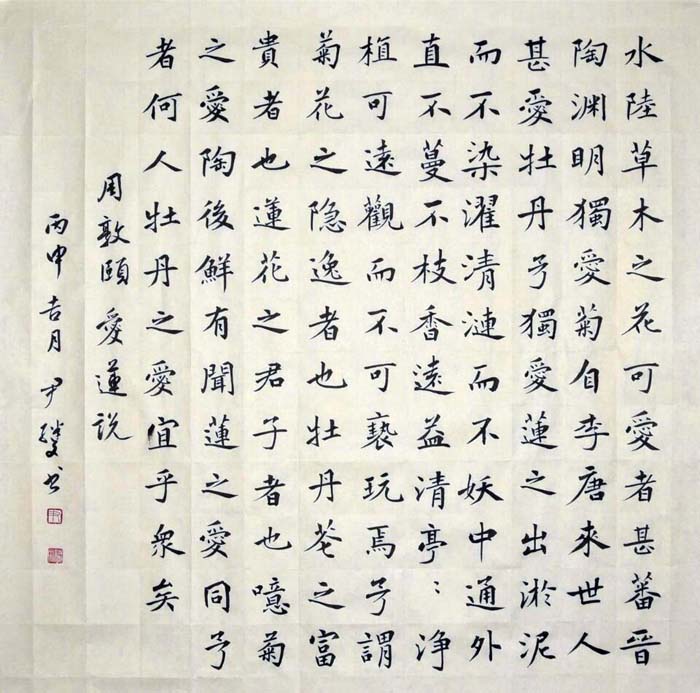 水陸草木之花可愛者甚蕃晉
陶渊明獨愛菊自李唐來世人
甚愛牡丹予獨愛蓮之出淤泥
而不染濯清漣而不妖中通外
直不蔓不枝香遠益清亭〻浄
植可遠觀而不可褻玩焉予謂
菊花之隐逸者也牡丹花之富
貴者也蓮花之君子者也噫菊
之愛陶後鮮有聞蓮之愛同予
者何人牡丹之愛宜乎衆矣
周敦頤愛蓮説
丙申吉月尹书